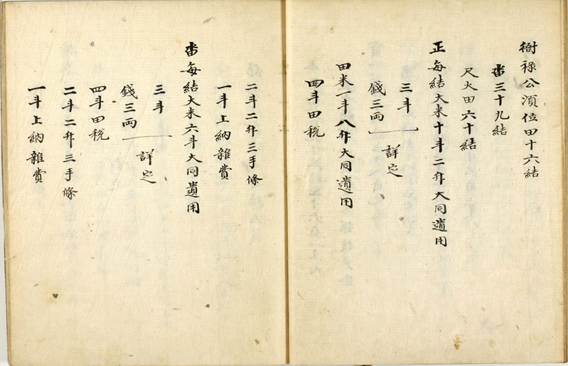 樹祿公須位田十六結
畓三十九結
尺大田六十結
正每結大米十斗二升大同遺用
三斗
錢三両
詳定
田米一斗八升大同遺用
四斗田稅
二斗二升三手條
一斗上納雜費
畓每結大米六斗大同遺用
三斗
錢三両
詳定
四斗田稅
二斗二升三手條
一斗上納雜費